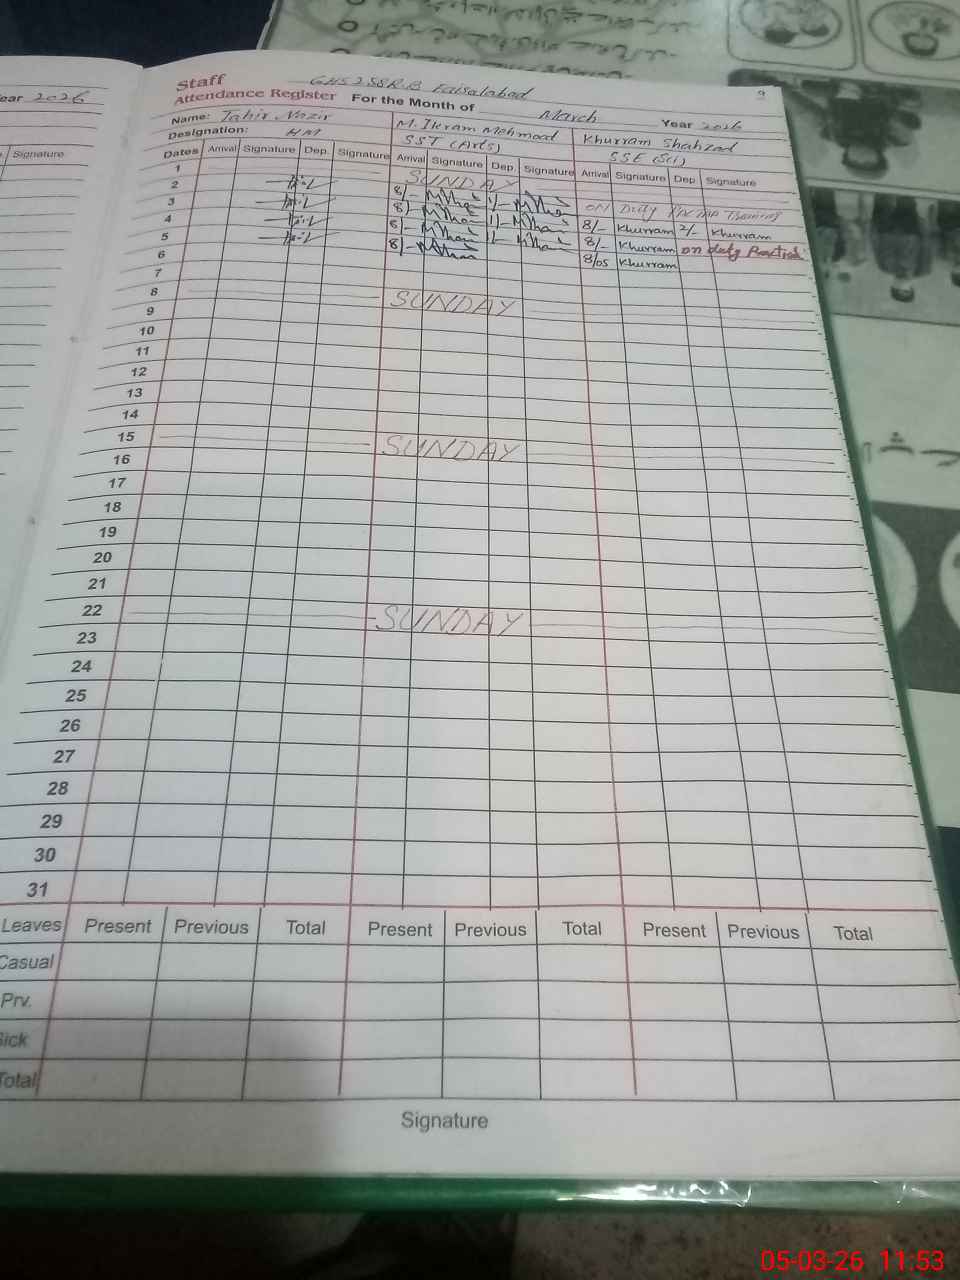 Year 2026
Signature
Staff GHS 258 R.B Faisalabad 9
Attendance Register For the Month of March Year 2026
Name: Tahir Nazir M. Ikram Mehmood Khurram Shahzad
Designation: HM SST (Arts) SSE (Sci)
Dates Arrival Signature Dep. Signature Arrival Signature Dep. Signature Arrival Signature Dep. Signature
1 SUNDAY
2 8/- ON Duty Training
3 8/- 8/- Khurram 2/- Khurram
4 8/- 8/- Khurram on duty Practical
5 8/- 8/05 Khurram
6
7
8 SUNDAY
9
10
11
12
13
14
15 SUNDAY
16
17
18
19
20
21
22 SUNDAY
23
24
25
26
27
28
29
30
31
Leaves Present Previous Total Present Previous Total Present Previous Total
Casual
Prv.
Sick
Total
Signature
05-03-26 11:53